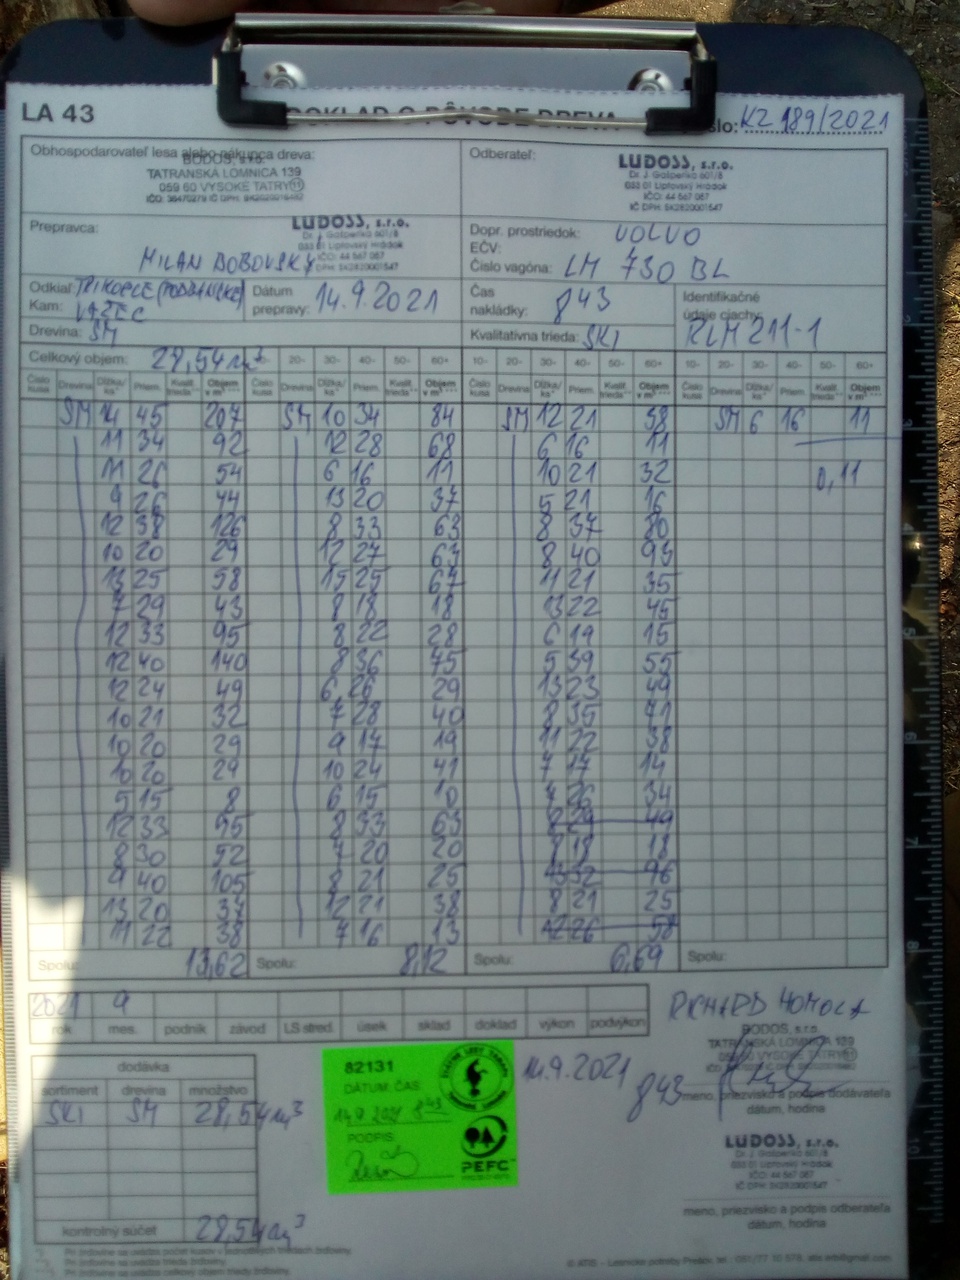 LA 43
DOKLAD O PÔVODE DREVA
Číslo: KZ 189/2021
Obhospodarovateľ lesa alebo nákupca dreva:
BODOS, s.r.o.
TATRANSKÁ LOMNICA 139
059 60 VYSOKÉ TATRY 11
Odberateľ:
LUDOSS, s.r.o.
Dr. J. Gašperíka 601/8
033 01 Liptovský Hrádok
IČO: 44 567 067
IČ DPH: SK2820001547
Prepravca:
LUDOSS, s.r.o.
Dr. J. Gašperíka 601/8
033 01 Liptovský Hrádok
IČO: 44 567 067
IČ DPH: SK2820001547
MILAN BOBOVSKÝ
Dopr. prostriedok: VOLVO
EČV:
Číslo vagóna: LM 730 BL
Odkiaľ:
Kam: VAŽEC
Dátum prepravy: 14.9.2021
Čas nakládky: 843
Identifikačné údaje ciachy: RLM 211-1
Drevina: SM
Kvalitatívna trieda: SKI
Celkový objem: 28,54 m³
10- 20- 30- 40- 50- 60+ 10- 20- 30- 40- 50- 60+ 10- 20- 30- 40- 50- 60+
Číslo kusa Drevina Dĺžka/ks Priem. Kvalit. trieda Objem v m³ Číslo kusa Drevina Dĺžka/ks Priem. Kvalit. trieda Objem v m³ Číslo kusa Drevina Dĺžka/ks Priem. Kvalit. trieda Objem v m³ Číslo kusa Drevina Dĺžka/ks Priem. Kvalit. trieda Objem v m³
SM 14 45 207 SM 10 34 84 SM 12 21 38 SM 6 16 11
11 34 92 12 28 68 6 16 11
11 26 54 6 16 11 10 21 32 0,11
9 26 44 13 20 37 5 21 16
12 38 126 8 33 63 8 37 80
10 20 29 12 27 63 8 40 93
13 25 58 15 25 67 11 21 35
7 29 43 8 18 18 13 22 45
12 33 95 8 22 28 6 19 15
12 40 140 8 36 75 5 39 55
12 24 49 6 26 29 13 23 49
10 21 32 7 28 40 8 35 71
10 20 29 9 17 19 11 22 38
10 20 29 10 24 41 7 17 14
5 15 8 6 15 10 7 26 34
12 33 95 8 33 63 8 29 49
8 30 52 7 20 20 8 18 18
9 40 105 8 21 25 32 96
13 20 37 12 21 38 8 21 25
11 22 38 7 16 13 12 26 58
Spolu: 13,62 Spolu: 8,12 Spolu: 6,69 Spolu:
2021 9
rok mes. podnik závod LS stred. úsek sklad doklad výkon podvýkon
RICHARD HOMOLA
BODOS, s.r.o.
TATRANSKÁ LOMNICA 139
059 60 VYSOKÉ TATRY 11
14.9.2021 843
meno, priezvisko a podpis dodávateľa
dátum, hodina
dodávka
sortiment drevina množstvo
SKI SM 28,54 m³
kontrolný súčet 28,54 m³
82131
DÁTUM, ČAS:
14.9.2021 843
PODPIS:
PEFC
LUDOSS, s.r.o.
Dr. J. Gašperíka 601/8
033 01 Liptovský Hrádok
IČO: 44 567 067
IČ DPH: SK2820001547
meno, priezvisko a podpis odberateľa
dátum, hodina